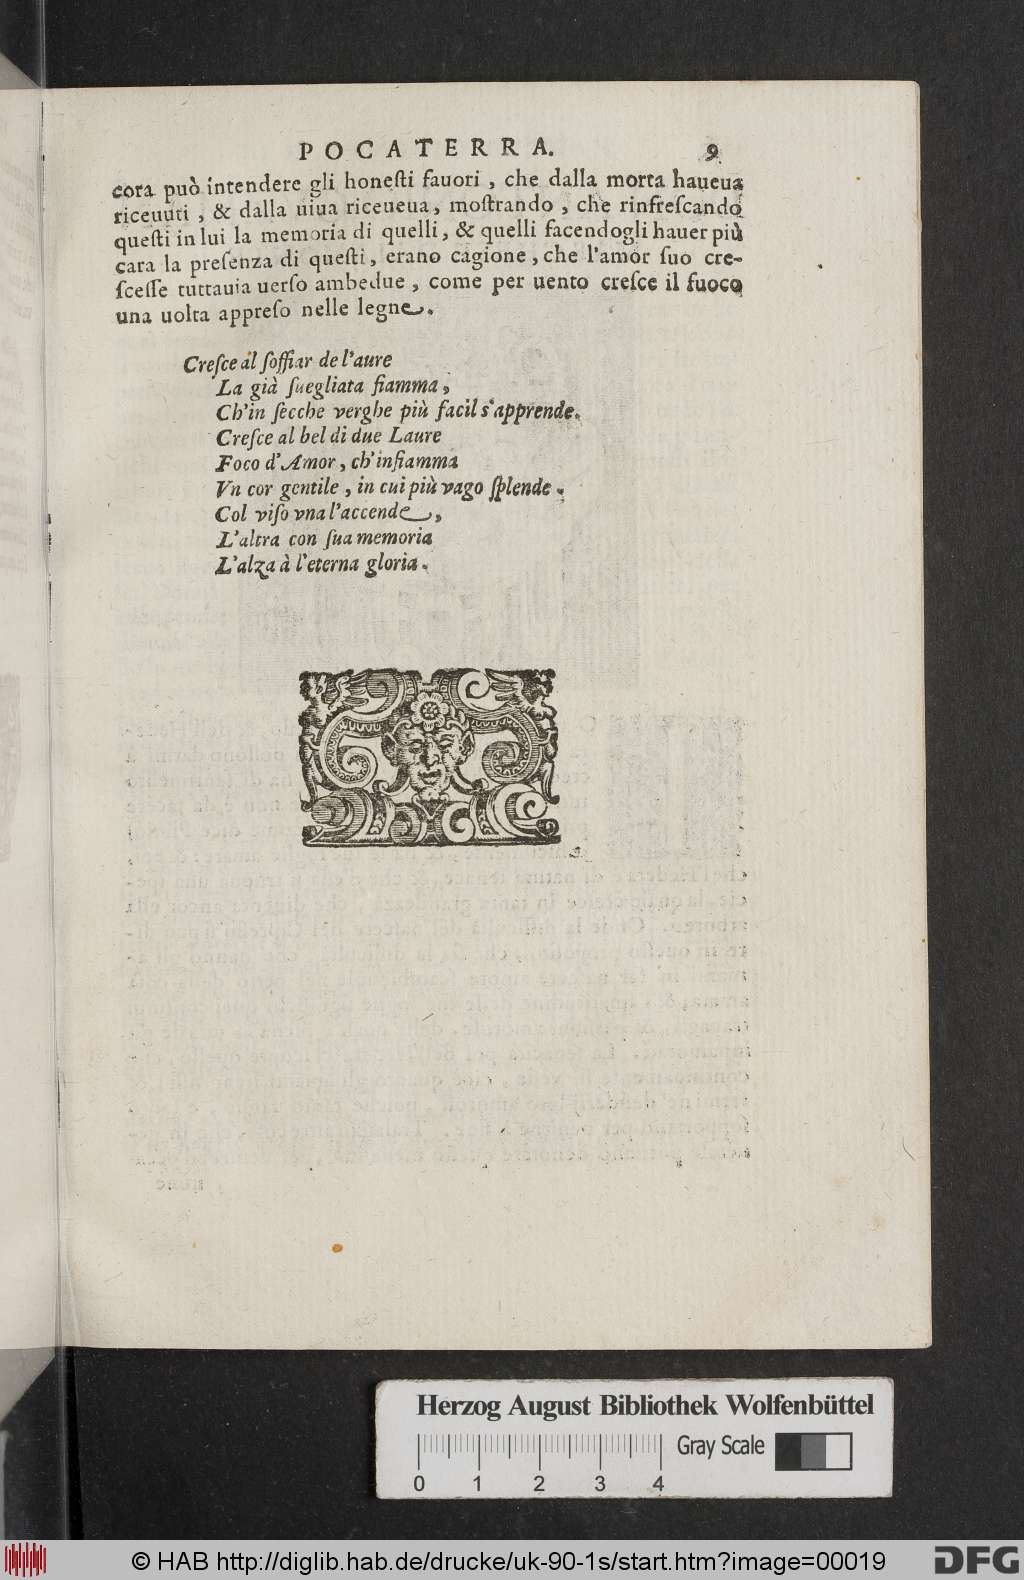 POCATERRA. 9
cora può intendere gli honeſti fauori, che dalla morta haueua
riceuuti, & dalla uiua riceueua, moſtrando, che rinfreſcando
queſti in lui la memoria di quelli, & quelli facendogli hauer più
cara la preſenza di queſti, erano cagione, che l'amor ſuo cre-
ſceſſe tuttauia uerſo ambedue, come per uento creſce il fuoco
una uolta appreſo nelle legne.
Creſce al ſoffiar de l'aure
La già ſuegliata fiamma,
Ch'in ſecche verghe più facil s'apprende.
Creſce al bel di due Laure
Foco d'Amor, ch'infiamma
Vn cor gentile, in cui più vago ſplende.
Col viſo vna l'accende,
L'altra con ſua memoria
L'alza à l'eterna gloria.
Herzog August Bibliothek Wolfenbüttel
Gray Scale
0 1 2 3 4
© HAB http://diglib.hab.de/drucke/uk-90-1s/start.htm?image=00019
DFG